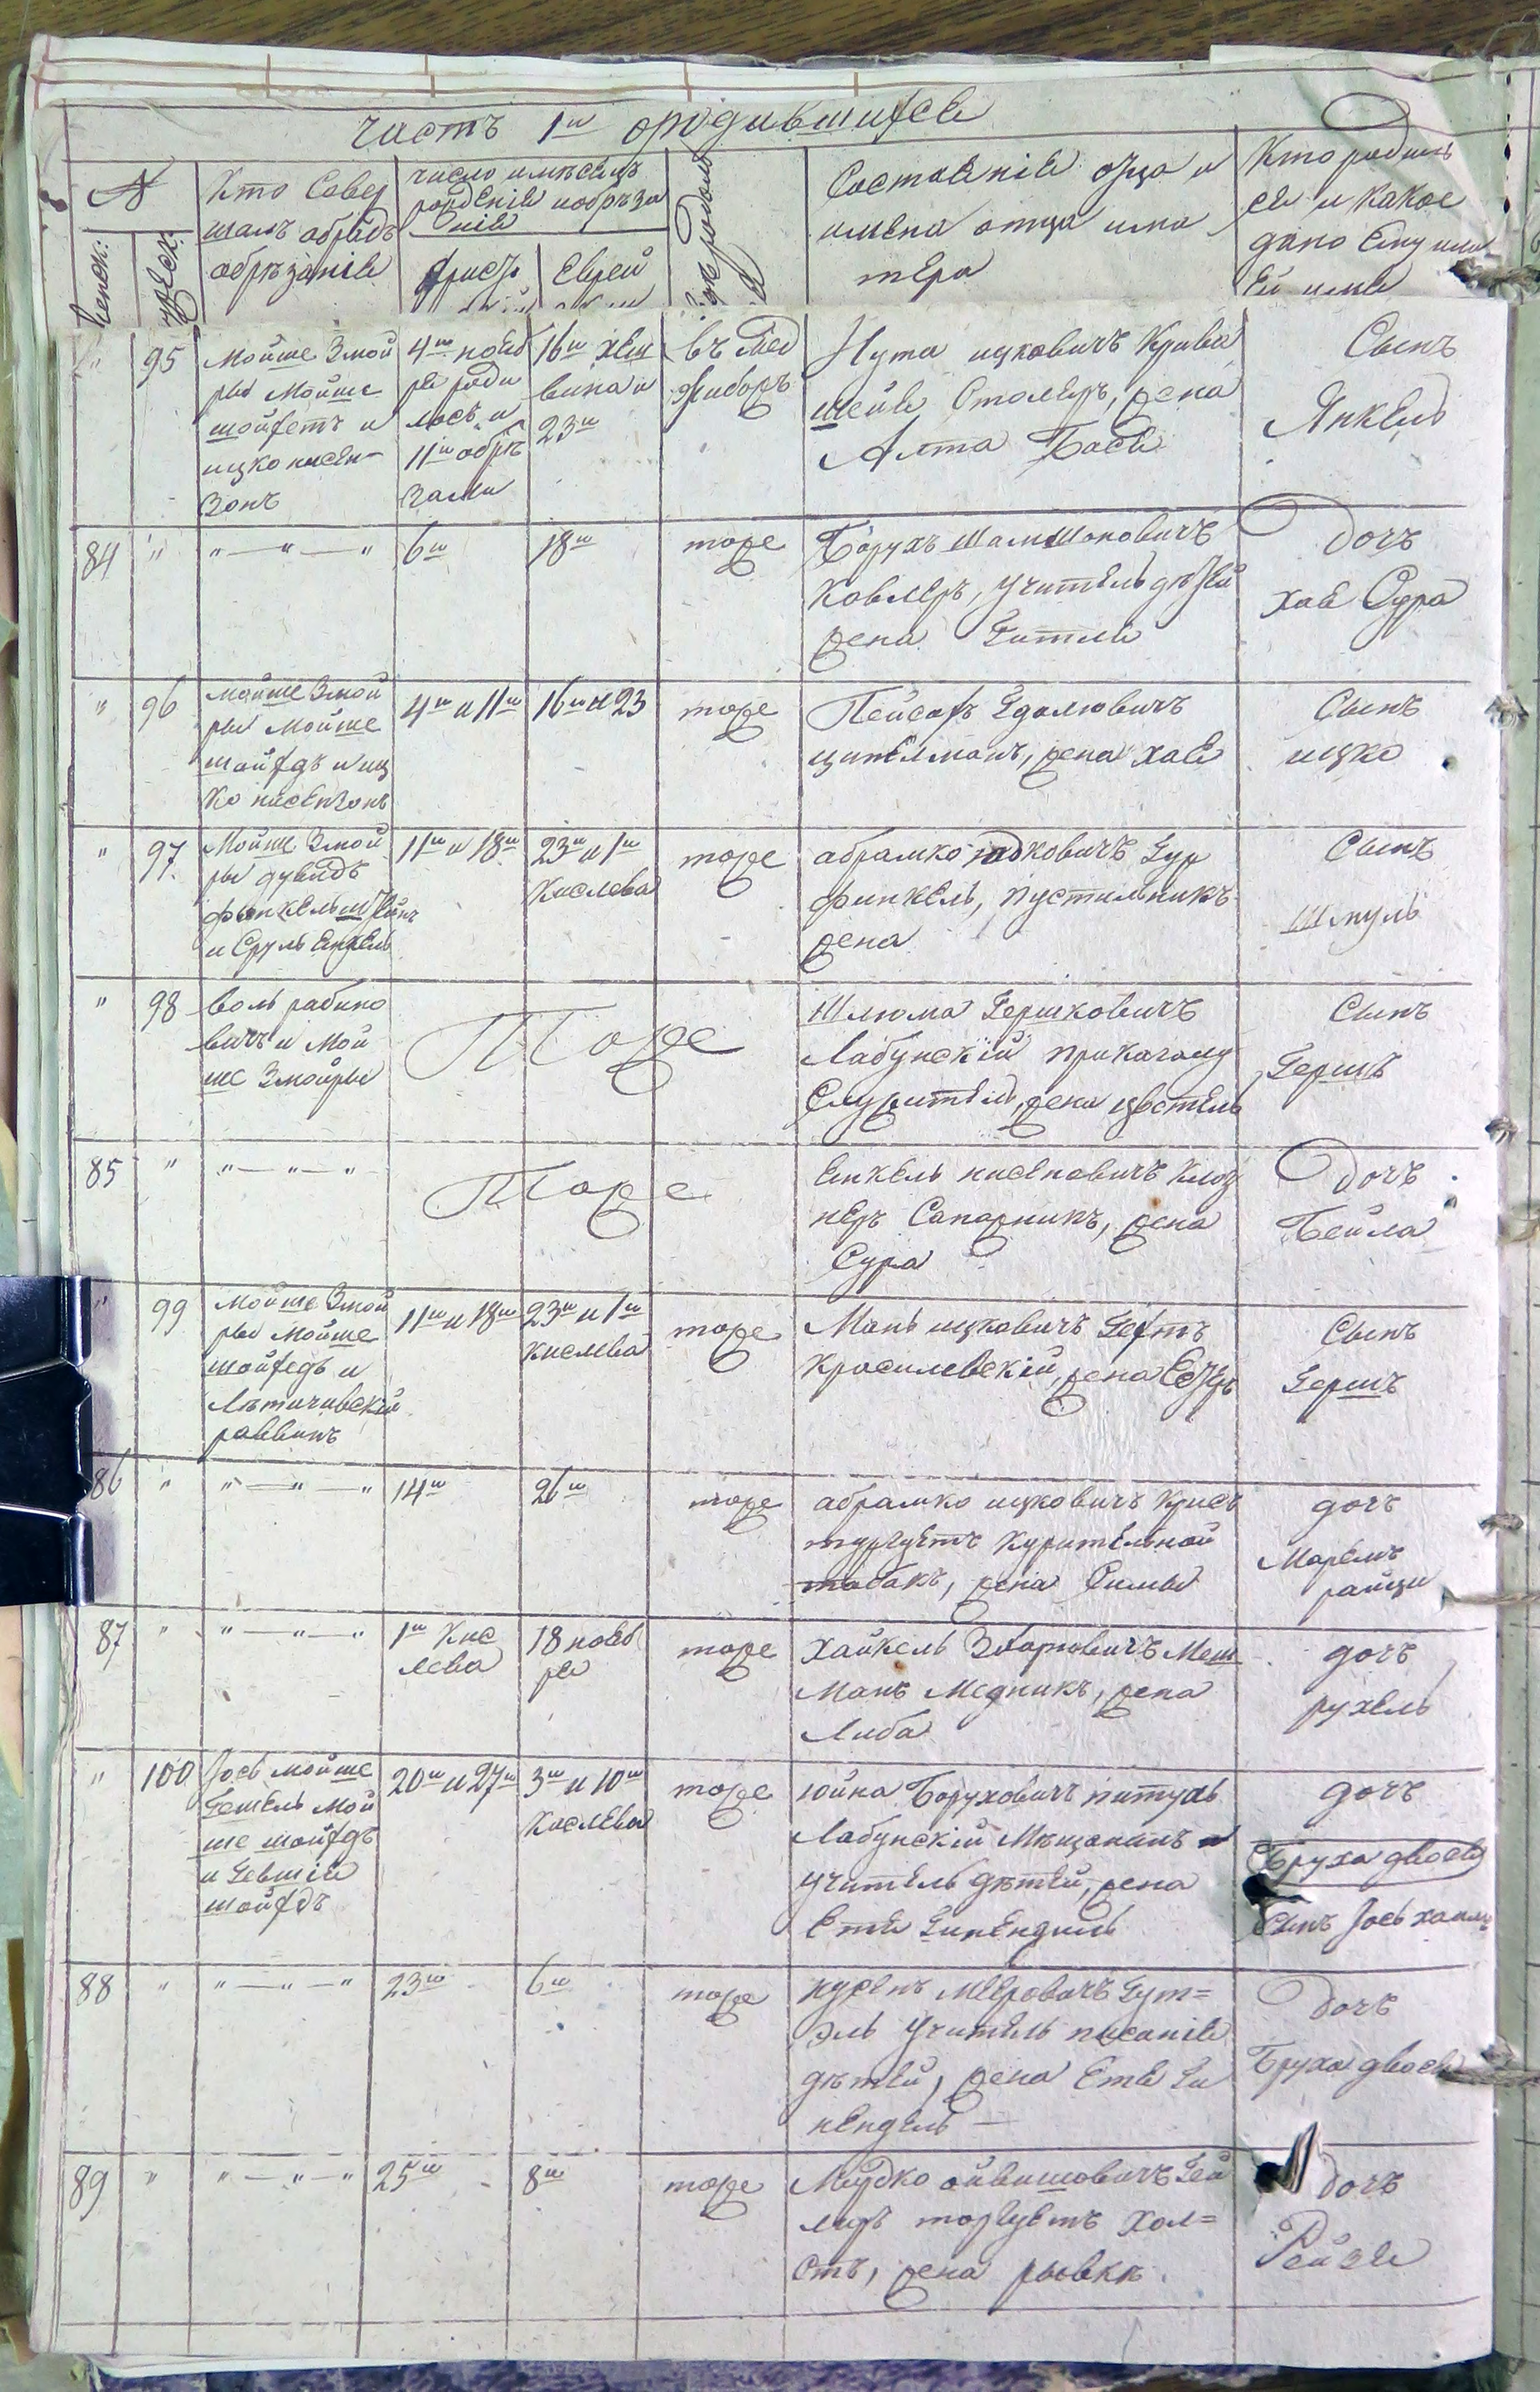 часть 1ш ородившихся
№
Кто Совер
шалъ обрядъ
обрѣзанія
число имѣсяцъ
рожденія иобрѣза
нія
Христ
Еврей
Состоянія отца и
имена отца има
тера
Кто родил
ся и какое
дано Ему или
Ей имя
женск:
мужеск:
" 95
Мойше Змой
ры Мойше
шойхетъ и
ицко нисен-
зонъ
4ш нояб
ря роди
лось и
11ш обрѣ
зали
16ш хеш
вина и
23ш
въ Мед
жиборъ
Нута ицковичъ Крива
шейя Столяръ, жена
Алта Бася
Сынъ
Янкель
84 " " — " — "
6ш
18ш
тоже
Борухъ Шамшоновичъ
Ковлеръ, Учитель дѣтей
жена Гитля
Дочь
хая Сура
" 96
Мойше Змой
ры Мойше
шойхдъ и иц
ко нисензонъ
4ш и 11ш
16ш и 23
тоже
Пейсахъ Удалювичъ
цители­манъ, жена хая
Сынъ
ицко
" 97
Мойше Змой
ры дувидъ
финкельштейнъ
и Сруль Енкель
11ш и 18ш
23ш и 1ш
Кислева
тоже
абрамко
финкель, пустильникъ
жена
Сынъ
Шмуль
" 98
воль рабино
вичъ и Мой
ше Змойры
Тоже
Шлюма Гершковичъ
Лабунскій прикагалу
Служитель, жена цветель
Сынъ
Гершъ
85 " " — " — "
Тоже
Енкель нисеновичъ Клоц
неръ Сапожникъ, жена
Сура
Дочь
Бейла
" 99
Мойше Змой
ры Мойше
шойхедъ и
Лѣтичивскій
раввинъ
11ш и 18ш
23ш и 1ш
кислева
тоже
Мань ицковичъ Гехтъ
Красилевскій, жена
Сынъ
Гершъ
86 " " — " — "
14ш
26ш
тоже
абрамко ицковичъ Крисъ
торгуетъ Курительной
табакъ, жена Симы
дочь
Марьямъ
райци
87 " " — " — "
1ш Кис
лева
18 нояб
ря
тоже
хайкель Меш
Манъ Медникъ, жена
Либа
дочь
рухель
" 100
Іось Мойше
Гешель Мой
ше шойхдъ
и Гевшія
шойхдъ
20ш и 27ш
3ш и 10ш
Кислева
тоже
юйна Боруховичъ питуль
Лабунскій Мѣщанинъ и
учитель дѣтей, жена
Етя Гинендиль
дочь
Бруха двося
Сынъ Іось хаимъ
88 " " — " — "
23ш
6ш
тоже
нусенъ Меровичъ Гут=
эль Учитель писанія
дѣтей, жена Етя Ги
нендель —
Дочь
Бруха двося
89 " " — " — "
25ш
8ш
тоже
Мордко ойвишовичъ Гей
леръ торгуетъ Хол=
стъ, жена рывкъ
Дочь
Рейзя